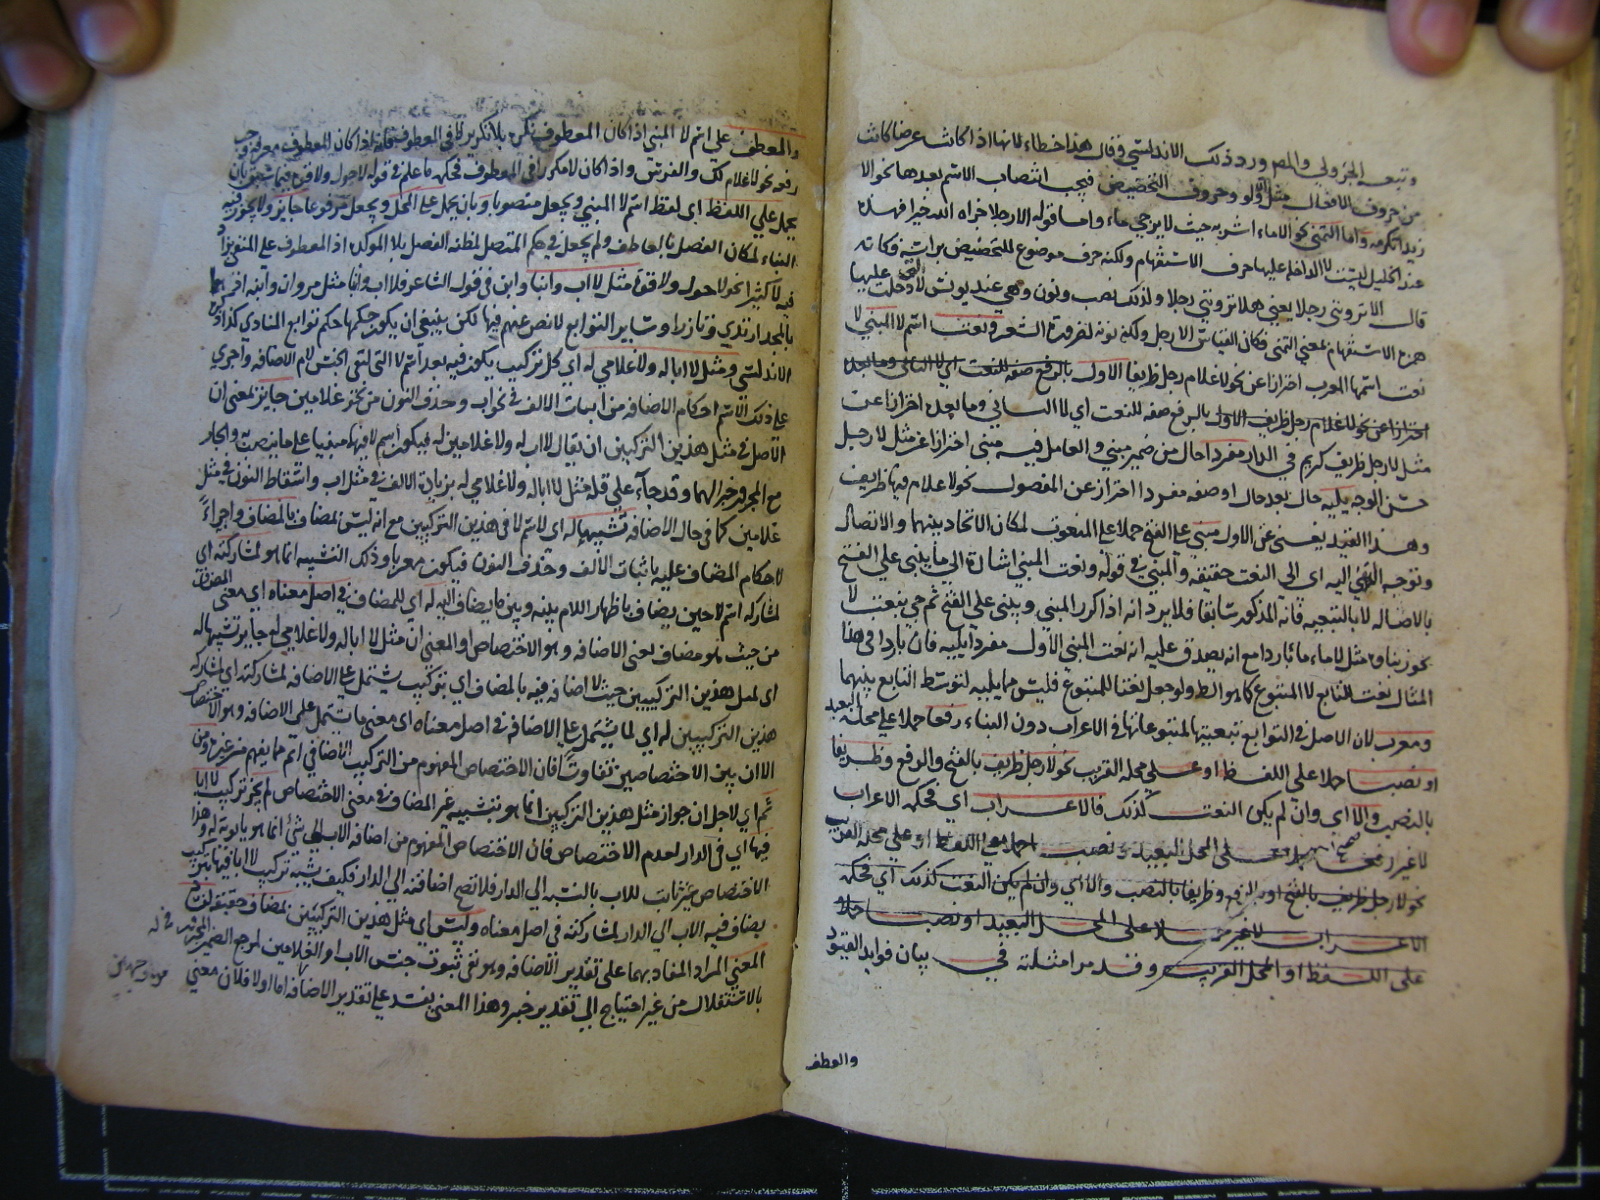 وتبعه الجزولى والمص ورد ذلك الاندلسى وقال هذا خطاء لانها اذا كانت عرضا كانت
من حروف الافعال مثل لو ولو وحروف التحضيض فيجب انتصاب الاسم بعدها نحو الا
زيدا تكرمه واما التمنى نحو الا ماء اشربه حيث لا يرجى ماء واما قوله الا رجلا جزاه الله خيرا فهذه
عند الخليل ليست لا الداخل عليها حرف الاستفهام ولكنه حرف موضوع للتحضيض براسه فكانه
قال الا تروننى رجلا يعنى هلا تروننى رجلا ولذلك نصب ونون وهى عند يونس لا التى دخلت عليها
همزة الاستفهام لمعنى التمنى فكان القياس الا رجل ولكنه نونه لضرورة الشعر ونعت اسم لا المبنى لا
نعت اسمها المعرب احترازا عن نحو لا غلام رجل ظريفا الاول بالرفع صفه للنعت اى لا الثانى وما بعده
احترازا عن نحو لا غلام رجل ظريف الاول بالرفع صفه للنعت اى لا الثانى وما بعده احترازا عن
مثل لا رجل ظريف كريم فى الدار مفردا حال من ضمير مبنى والعامل فيه مبنى احترازا عن مثل لا رجل
حسن الوجه يليه حال بعد حال او صفه مفردا احتراز عن المفصول نحو لا غلام فيها ظريف
وهذا القيد يغنى عن الاول مبنى على الفتح حملا على المنعوت لمكان الاتحاد بينهما والاتصال
وتوجه النفى اليه اى الى النعت حقيقه والمبنى فى قوله ونعت المبنى اشارة الى ما يبنى على الفتح
بالاصاله لا بالتبعيه فانه المذكور سابقا فلا يرد انه اذا كرر المبنى وبنى على الفتح ثم جى بنعت لا
يجوز بناؤه مثل لا ماء ماء باردا مع انه يصدق عليه انه نعت المبنى الاول مفردا يليه فان باردا فى هذا
المثال نعت للتابع لا المتبوع كما هو الظ ولو جعل نعتا للمتبوع فليس مما يليه لتوسط التابع بينهما
ومعرب لان الاصل فى التوابع تبعيتها لمتبوعاتها فى الاعراب دون البناء رفعا حملا على محله البعيد
او نصبا حملا على اللفظ او على محله القريب نحو لا رجل ظريف بالفتح والرفع وظريفا
بالنصب والا اى وان لم يكن النعت كذلك فالاعراب اى فحكمه الاعراب
لا غير رفعا حملا على المحل البعيد ونصبا حملا على اللفظ او على محله القريب
نحو لا رجل ظريف بالفتح او بالرفع وظريفا بالنصب والا اى وان لم يكن النعت كذلك اى فحكمه
الاعراب لا غير حملا على المحل البعيد او نصبا حملا
على اللفظ او المحل القريب وقد مر امثلته فى بيان فوايد القيود
والعطف
والعطف على اسم لا المبنى اذا كان المعطوف نكرة بلا تكرير لا فى المعطوف فانه اذا كان المعطوف معرفة وجب
رفعه نحو لا غلام لك والفرس واذا كان لا مكررا فى المعطوف فحكمه ما علم فى قوله لا حول ولا قوة فيما سبق بان
يحمل على اللفظ اى لفظ اسم لا المبنى ويجعل منصوبا وبان يحمل على المحل ويجعل مرفوعا جايز ولا يجوز فيه
البناء لمكان الفصل بالعاطف ولم يجعل فى حكم المتصل لمظنه الفصل بلا الموكدة اذ المعطوف على المنفى يزاد
فيه لا كثيرا نحو لا حول ولا قوة مثل لا اب وابنا وابن فى قول الشاعر فلا اب وابنا مثل مروان وابنه اذا هو
بالمجد ارتدى وتازرا وساير التوابع لا نص عنهم فيها لكن ينبغى ان يكون حكمها حكم توابع المنادى كذا ذكره
الاندلسى ومثل لا ابا له ولا غلامى له اى كل تركيب يكون فيه بعد اسم لا التى لنفى الجنس لام الاضافه واجرى
على ذلك الاسم احكام الاضافه من اثبات الالف فى نحو اب وحذف النون من نحو غلامين جايز لمعنى ان
الاصل فى مثل هذين التركيبين ان يقال لا اب له ولا غلامين له فيكون اسم لا فيهما مبنيا على ما ينصب به والجار
مع المجرور خبرا لهما وقد جاء على قلة مثل لا ابا له ولا غلامى له بزيادة الالف فى مثل اب واسقاط النون فى مثل
غلامين كما فى حال الاضافه تشبيها له اى لاسم لا فى هذين التركيبين مع انه ليس بمضاف بالمضاف واجراء
لاحكام المضاف عليه باثبات الالف وحذف النون فيكون معربا وذلك التشبيه انما هو لمشاركته اى
لمشاركه اسم لا حين يضاف باظهار اللام بينه وبين ما يضاف اليه له اى للمضاف فى اصل معناه اى معنى المضاف
من حيث هو مضاف يعنى الاضافه وهو الاختصاص او المعنى ان مثل لا ابا له ولا غلامى له جايز تشبيها له
اى لمثل هذين التركيبين حيث لا اضافه فيه بالمضاف اى بتركيب يشتمل على الاضافه لمشاركته اى لمشاركه
هذين التركيبين له اى لما يشتمل على الاضافه فى اصل معناه اى معنى ما يشتمل على الاضافه وهو الاختصاص
الا ان بين الاختصاصين تفاوتا فان الاختصاص المفهوم من التركيب الاضافى اتم مما يفهم من غيره ومن
ثم اى لاجل ان جواز مثل هذين التركيبين انما هو بتشبيه غير المضاف فى معنى الاختصاص لم يجز تركيب لا ابا
فيها اى فى الدار لعدم الاختصاص فان الاختصاص المفهوم من اضافه الاب الى شئ انما هو بالابوة له وهذا
الاختصاص غير ثابت للاب بالنسبه الى الدار فلا تصح اضافته الى الدار فكيف يشبه تركيب لا ابا فيها بتركيب
يضاف فيه الاب الى الدار لمشاركته فى اصل معناه وليس اى مثل هذين التركيبين بمضاف حقيقه لفساد
المعنى المراد المفاد بهما على تقدير الاضافه وهو نفى ثبوت جنس الاب او الغلامين لمرجع الضمير المجرور فى له
بالاستقلال من غير احتياج الى تقدير خبر وهذا المعنى يفسد على تقدير الاضافه اما اولا فلان معنى